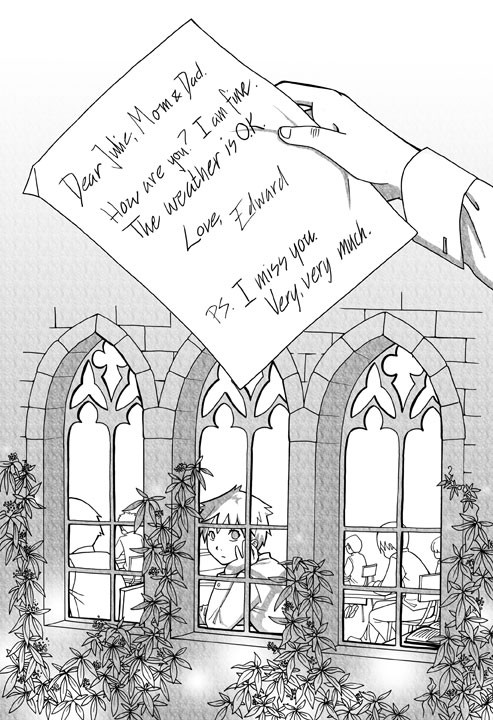 Dear Julie, Mom & Dad.
How are you? I am fine.
The weather is OK
Love, Edward
PS. I miss you.
Very, very much.